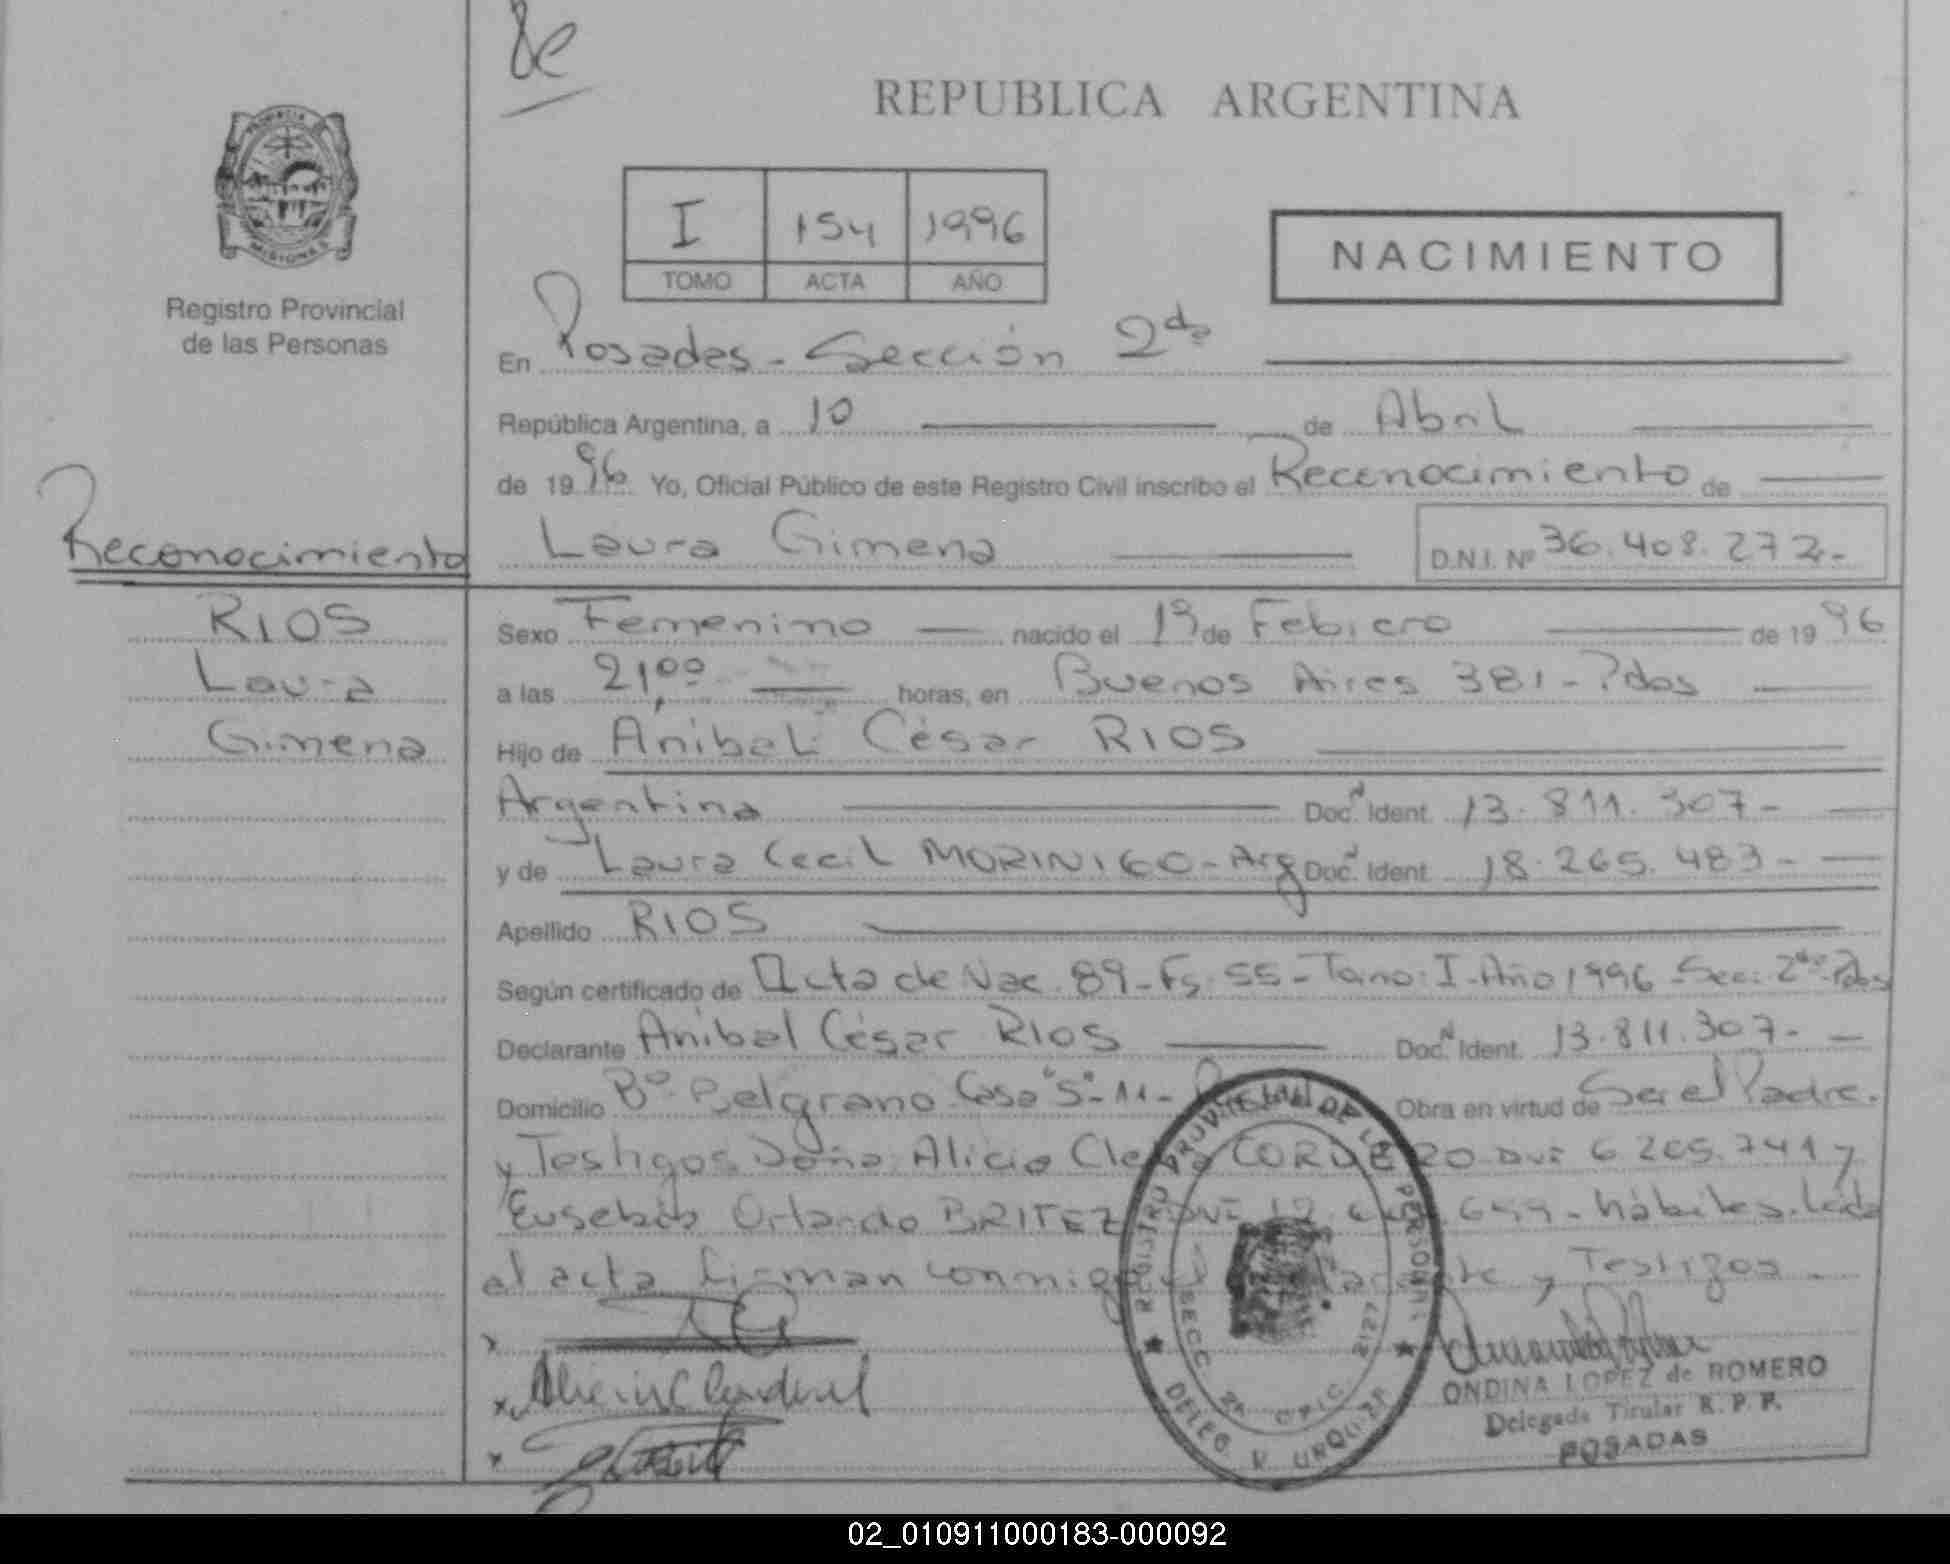 REPUBLICA ARGENTINA
PROVINCIA
MISIONES
Registro Provincial
de las Personas
I 154 1996
TOMO ACTA AÑO
NACIMIENTO
En Posadas - Sección 2da
República Argentina, a 10 de Abril
de 1996 Yo, Oficial Público de este Registro Civil inscribo el Reconocimiento de
Reconocimiento
Laura Gimena D.N.I. Nº 36.408.272-
RIOS
Laura
Gimena
Sexo Femenino nacido el 19 de Febrero de 1996
a las 21,00 horas, en Buenos Aires 381 - Pdas
Hijo de Anibal César RIOS
Argentina Doc. Ident. 13.811.307-
y de Laura Cecil MORINIGO - Arg Doc. Ident. 18.265.483-
Apellido RIOS
Según certificado de Acta de Nac. 89 - Fs. 55 - Tomo: I - Año 1996 - Sec. 2da Pdas
Declarante Anibal César RIOS Doc. Ident. 13.811.307-
Domicilio Bº Belgrano Casa "S" - 11 - Obra en virtud de Ser el Padre.
y Testigos Doña Alicia CORDERO DNI 6.205.741 y
Eusebio Orlando BRITEZ DNI hábiles. Leida
el acta firman conmigo el y Testigos
REGISTRO PROVINCIAL DE LAS PERSONAS
SECC. 2A OFIC. 2127
DELEG. V. URQUIZA
ONDINA LOPEZ de ROMERO
Delegada Titular R. P. P.
POSADAS
02_010911000183-000092